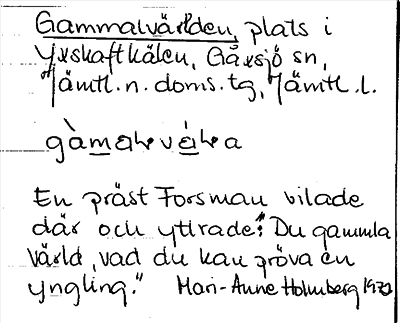 Gammalvärlden, plats i
Yxskaftkälen, Gåxsjö sn,
Jämtl. n. doms. tg, Jämtl. l.
En präst Forsman vilade
där och yttrade: "Du gamla
värld, vad du kan pröva en
yngling."   Mari-Anne Holmberg 1970